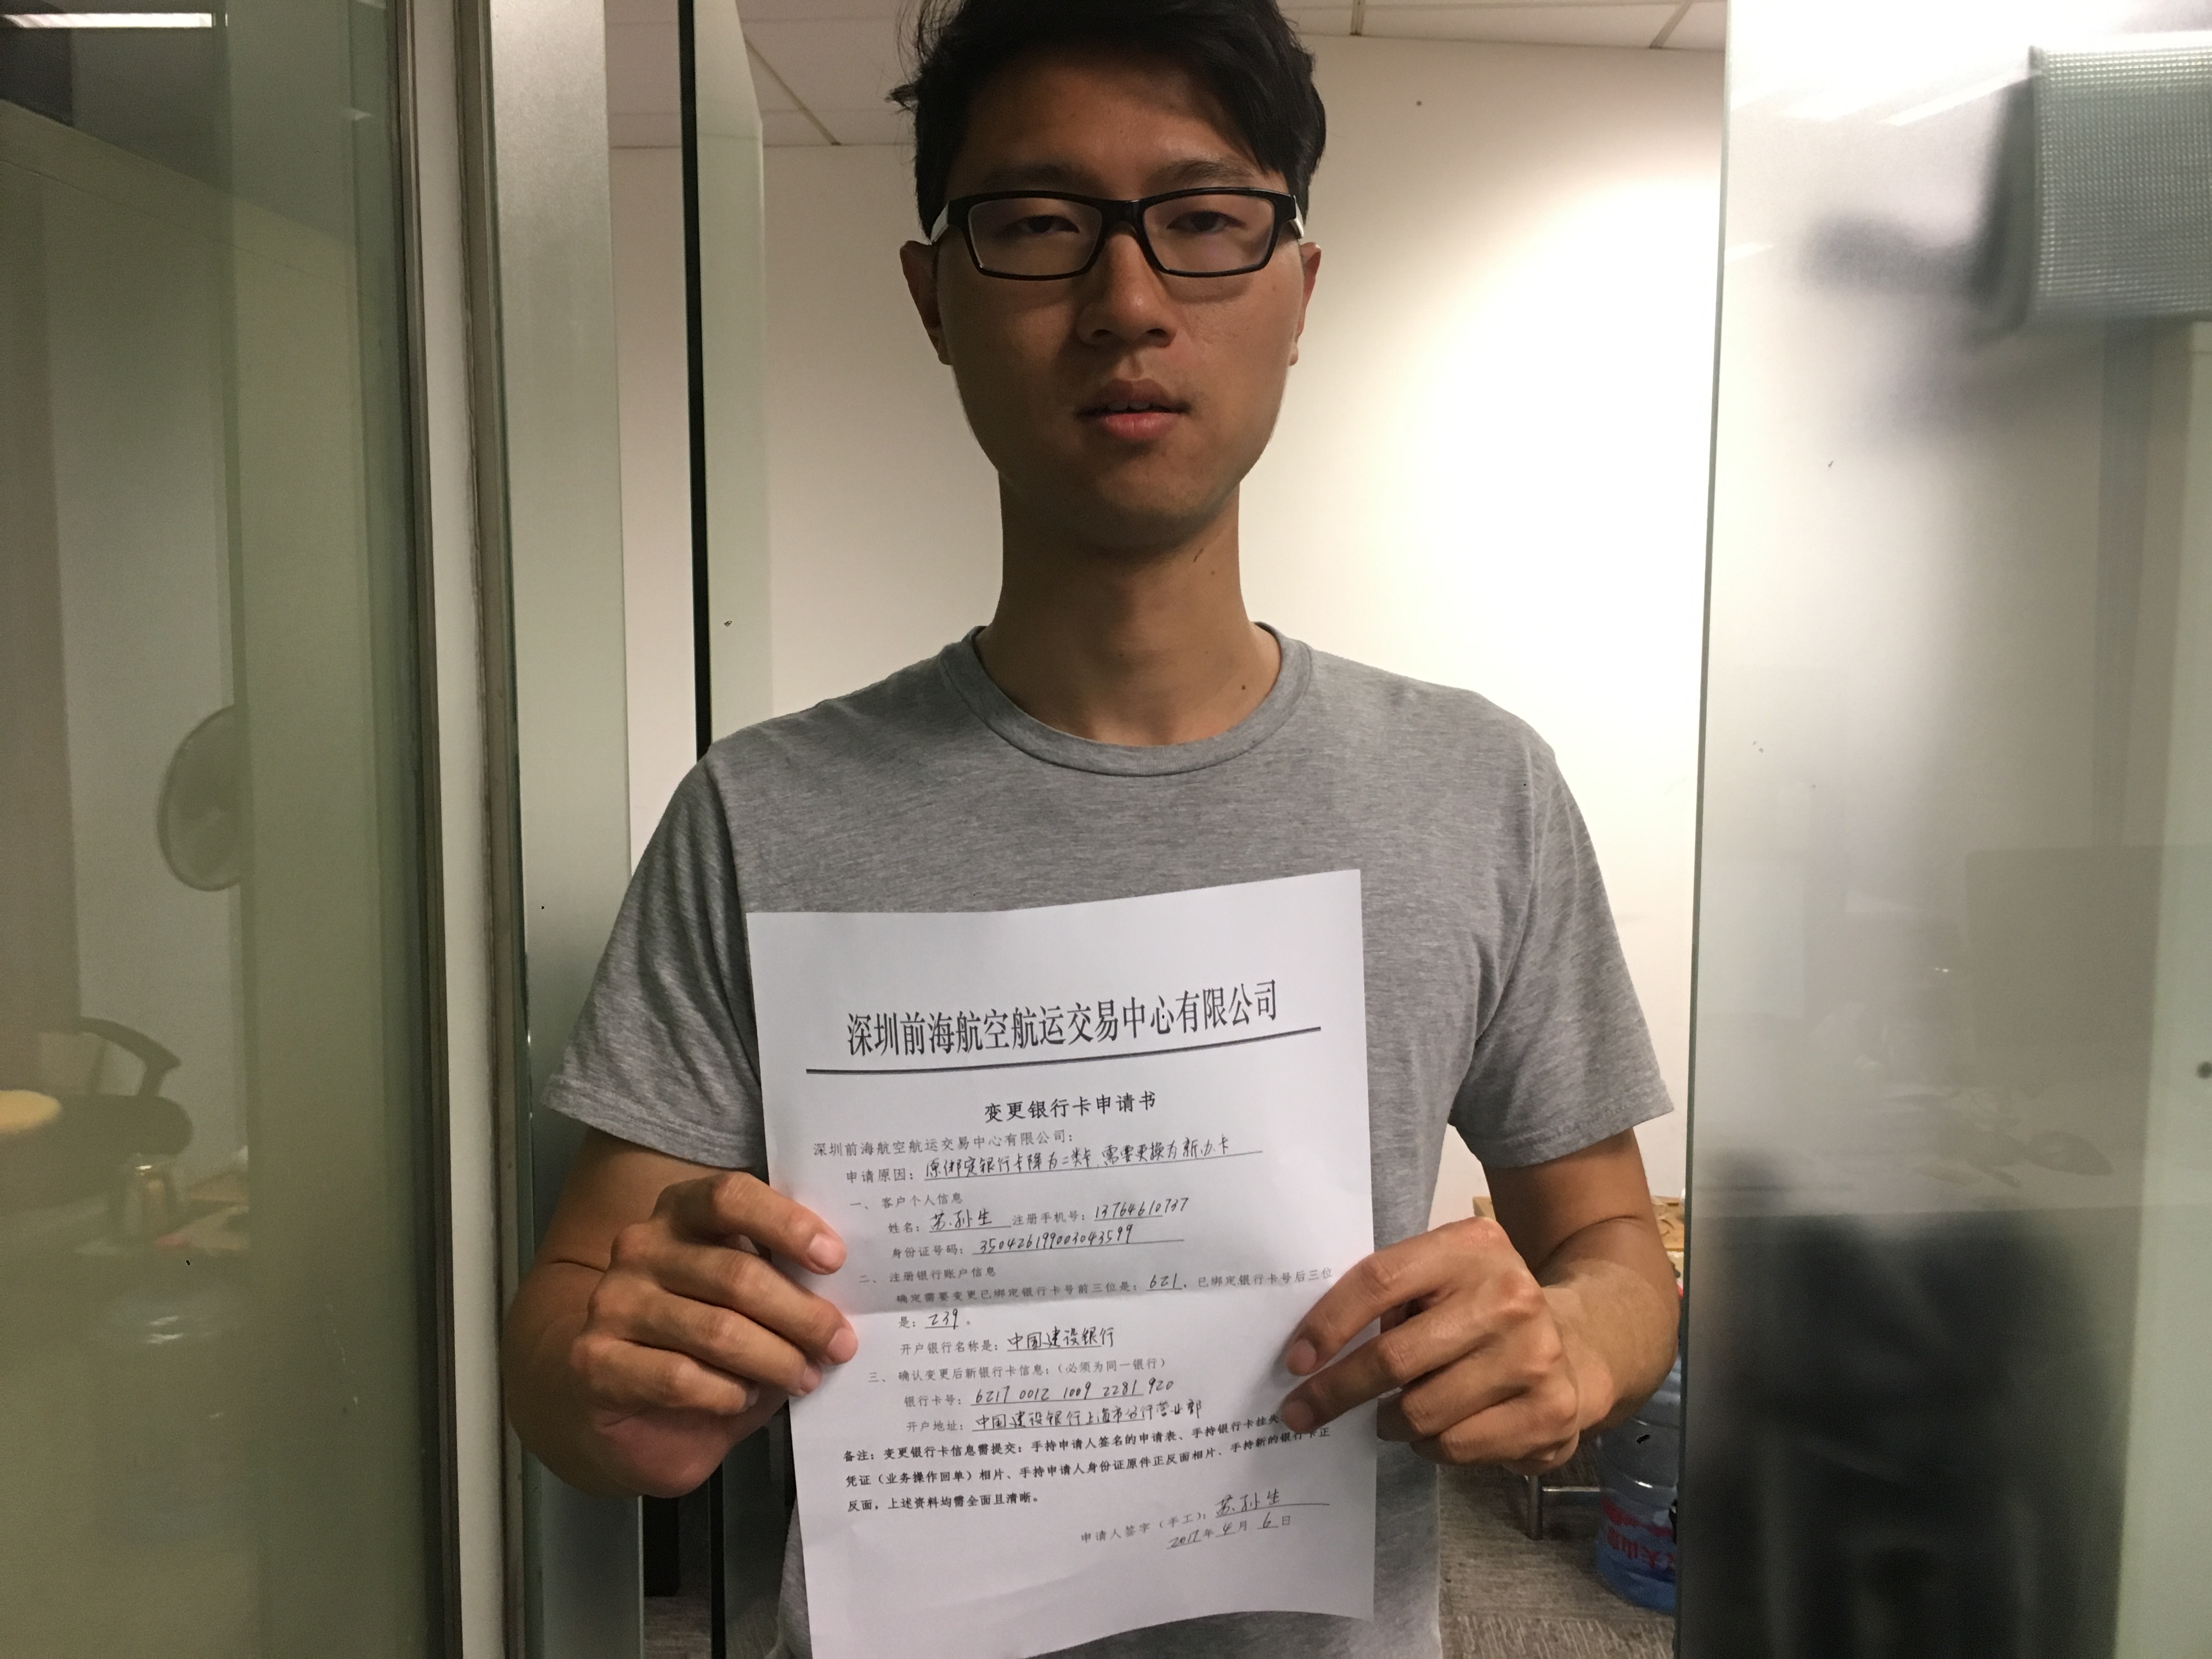 深圳前海航空航运交易中心有限公司
变更银行卡申请书
深圳前海航空航运交易中心有限公司：
申请原因：原绑定银行卡降为二类卡，需要更换为新办卡
一、客户个人信息
姓名：苏孙生 注册手机号：13764610737
身份证号码：350426199003043599
二、注册银行账户信息
确定需要变更已绑定银行卡号前三位是：621，已绑定银行卡号后三位
是：239。
开户银行名称是：中国建设银行
三、确认变更后新银行卡信息：（必须为同一银行）
银行卡号：6217 0012 1009 2281 920
开户地址：中国建设银行上海市分行营业部
备注：变更银行卡信息需提交：手持申请人签名的申请表、手持银行卡挂失
凭证（业务操作回单）相片、手持申请人身份证原件正反面相片、手持新的银行卡正
反面，上述资料均需全面且清晰。
申请人签字（手工）：苏孙生
2017年4月6日